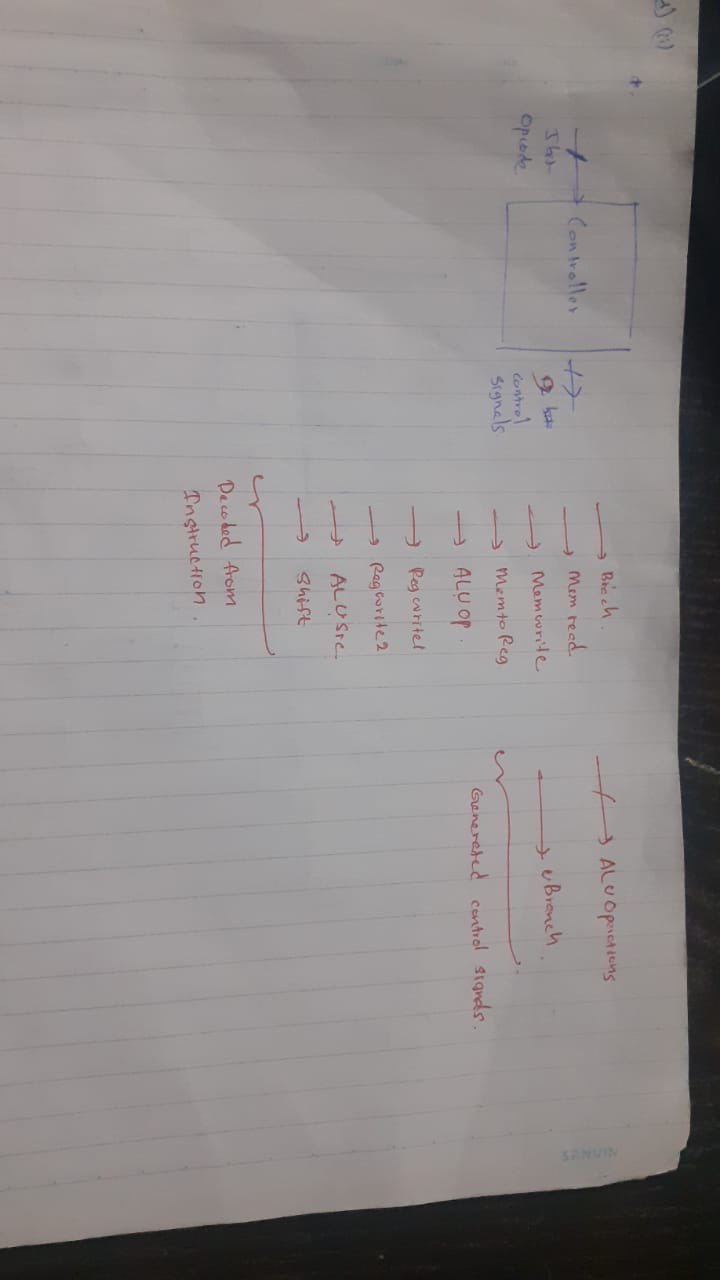 d) (ii)
Controller
opcode
control
signals
Brech.
Mem read
Memwrite
MemtoReg
ALUOP.
Regwrite1
Regwrite2
ALUSrc
Shift
Decoded from
Instruction.
ALUOperations
uBranch.
Generated control signals.